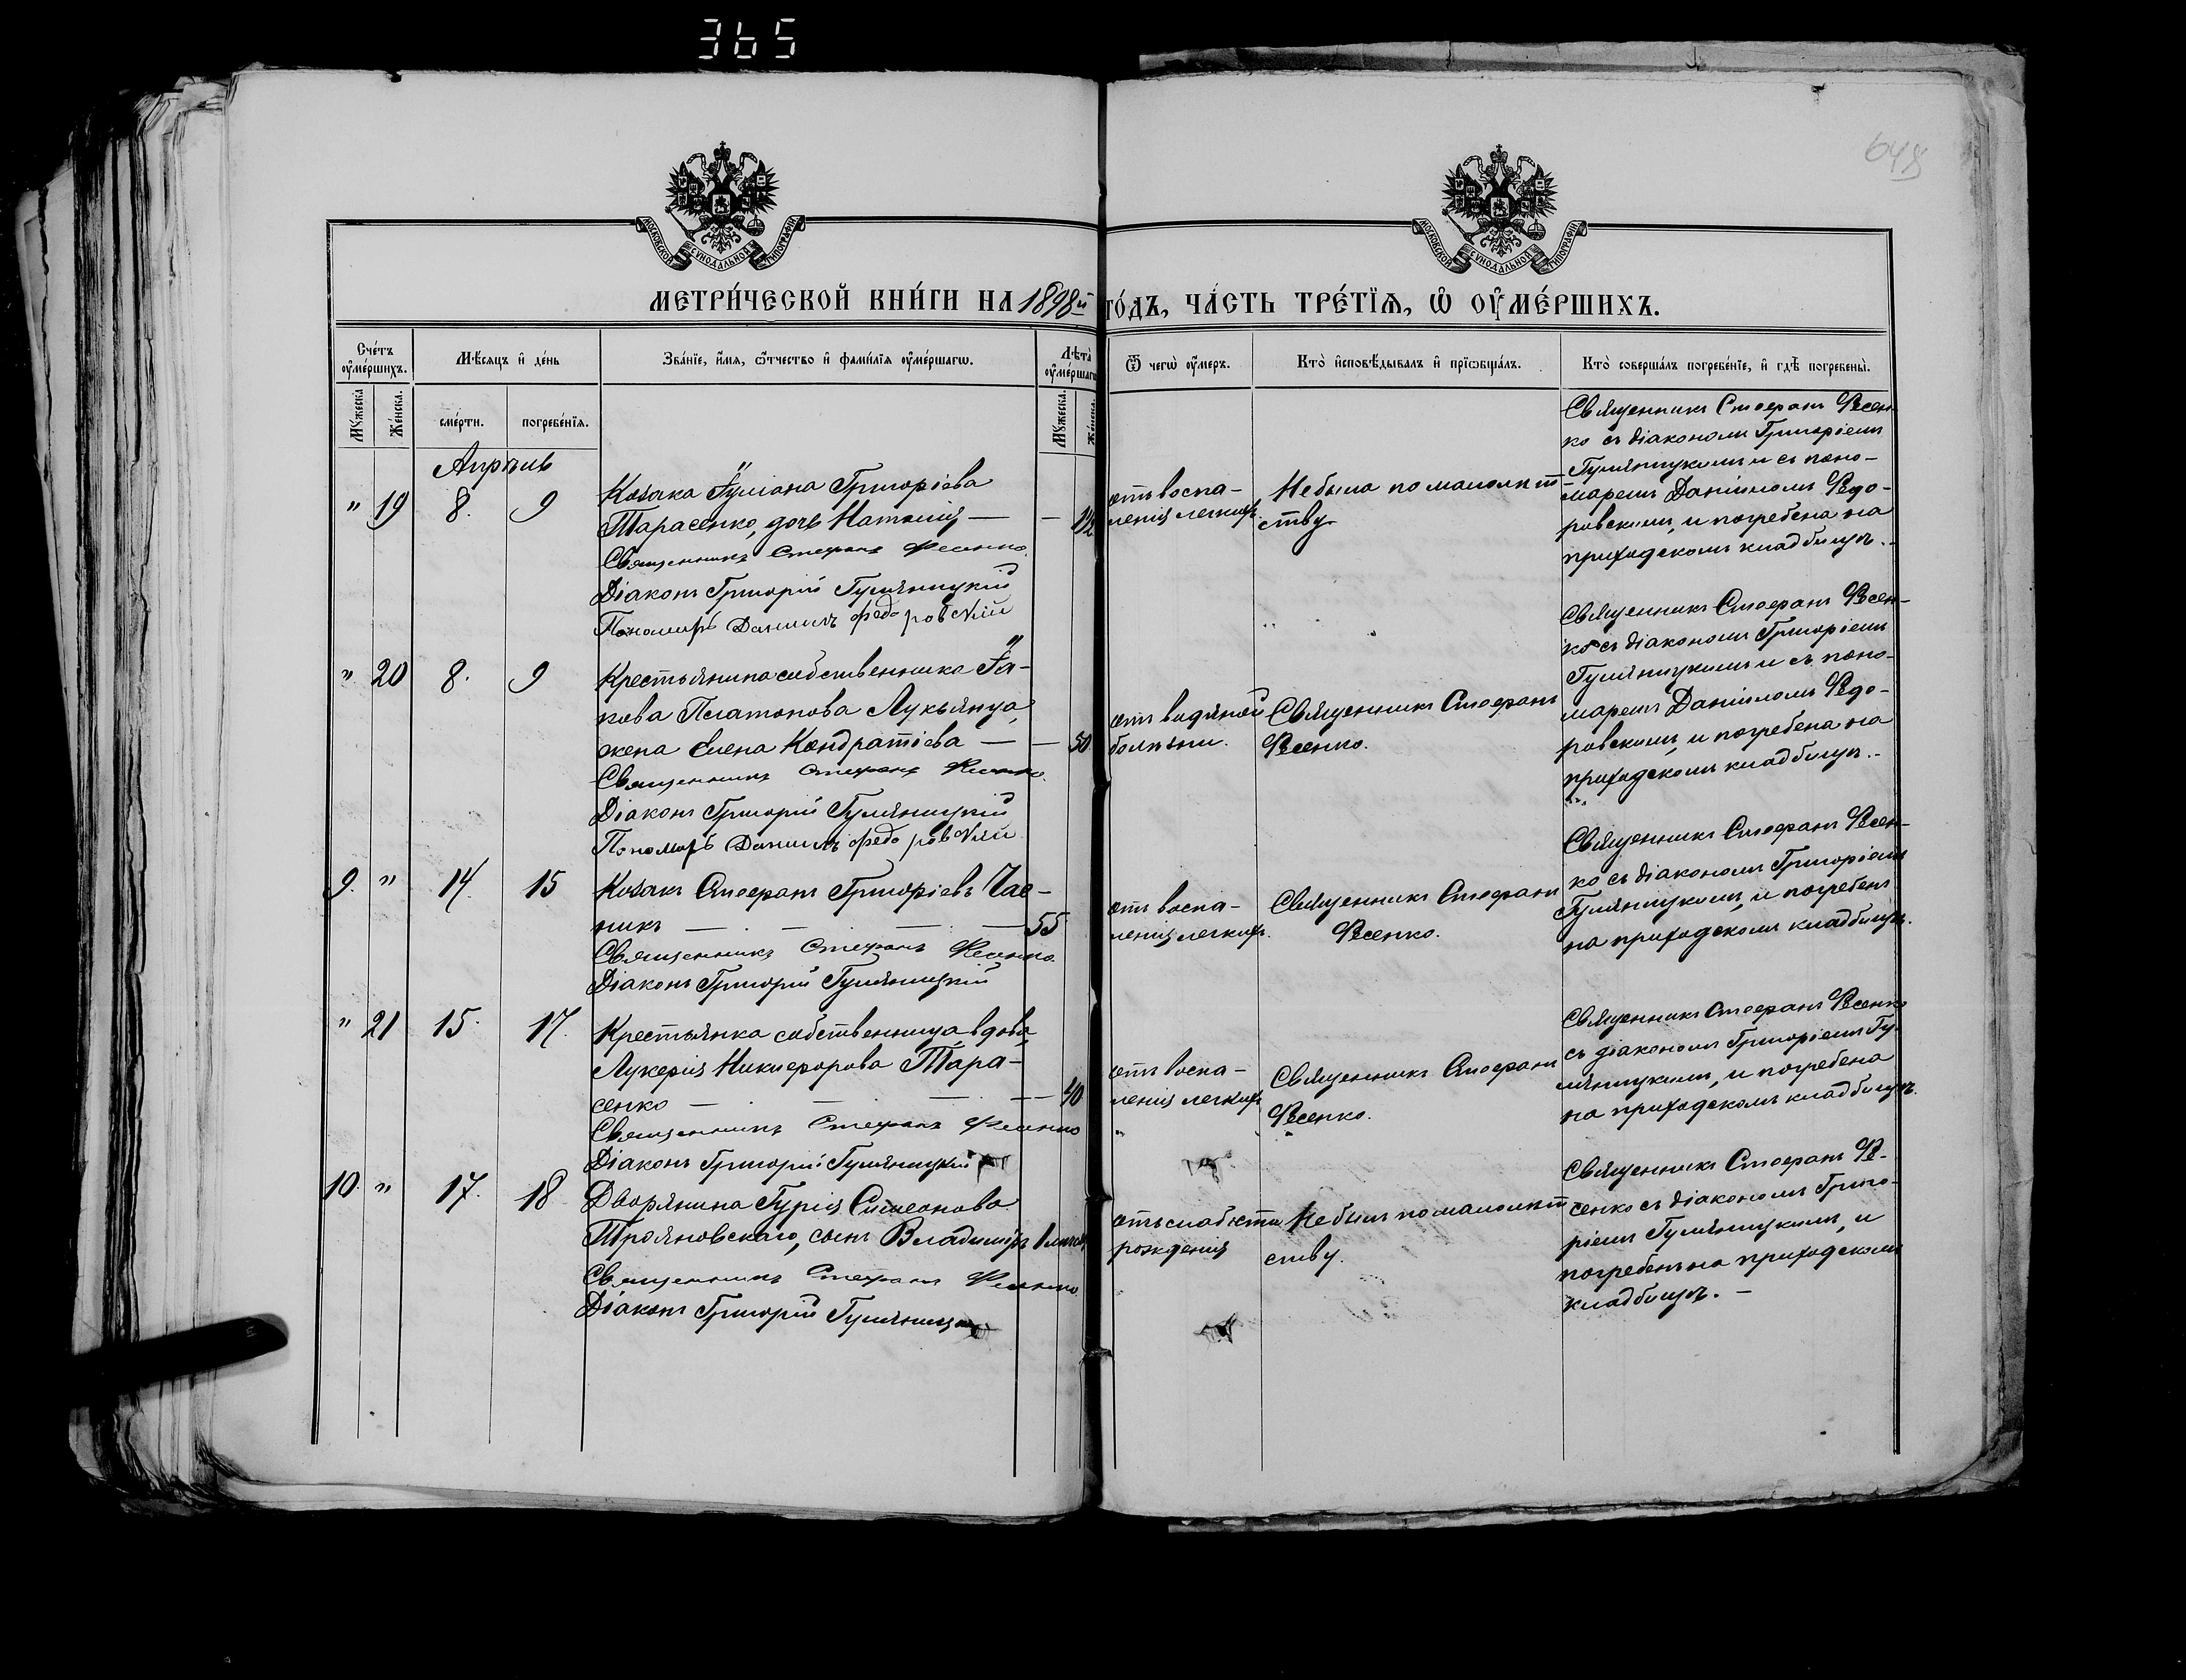 365
648
МОСКОВСКОЙ СѴНОДАЛЬНОЙ ТИПОГРАФІИ
МОСКОВСКОЙ СѴНОДАЛЬНОЙ ТИПОГРАФІИ
МЕТРИ́ЧЕСКОЙ КНИ́ГИ НА 1898й
ГО́ДЪ, ЧА́СТЬ ТРЕ́ТЇѦ, Ѡ҆ ОУ҆МЕ́РШИХЪ.
Сче́тъ оу҆ме́ршихъ.
Мꙋ́жеска.
Же́нска.
Мѣ́сѧцъ и҆ де́нь
сме́рти.
погребе́нїѧ.
Зва́нїе, и҆́мѧ, ѻ҆́тчество и҆ фами́лїѧ оу҆ме́ршагѡ.
Лѣ́та оу҆ме́ршагѡ
Мꙋ́жеска.
Же́нска.
Ѿ чегѡ̀ оу҆́меръ.
Кто̀ и҆сповѣ́дывалъ и҆ прїѡбща́лъ.
Кто̀ соверша́лъ погребе́нїе, и҆ гдѣ̀ погребены̀.
Апрѣль
" 19 8. 9
Козака Іуліана Григоріева
Тарасенко, дочь Наталія —
Священникъ Стефанъ Фесенко.
Діаконъ Григорій Гумяницкій
Пономарь Даніилъ Федоровскій
отъ воспа-
ленія легкихъ.
Не была по малолѣт-
ству
Священникъ Стефанъ Фесен-
ко съ діакономъ Григоріемъ
Гумяницкимъ и съ поно-
маремъ Даніиломъ Федо-
ровскимъ, и погребена на
приходскомъ кладбищѣ.
" 20 8. 9
Крестьянина собственника Іа-
кова Платонова Лукьянца,
жена Елена Кондратіева — — 50
Священникъ Стефанъ Фесенко.
Діаконъ Григорій Гумяницкій
Пономарь Даніилъ Федоровскій
отъ водяной
болѣзни.
Священникъ Стефанъ
Фесенко.
Священникъ Стефанъ Фесен-
ко съ діакономъ Григоріемъ
Гумяницкимъ и съ поно-
маремъ Даніиломъ Федо-
ровскимъ, и погребена на
приходскомъ кладбищѣ.
9. " 14. 15
Козакъ Стефанъ Григоріевъ Час-
никъ — — — — 55
Священникъ Стефанъ Фесенко.
Діаконъ Григорій Гумяницкій
отъ воспа-
ленія легкихъ.
Священникъ Стефанъ
Фесенко.
Священникъ Стефанъ Фесен-
ко съ діакономъ Григоріемъ
Гумяницкимъ, и погребенъ
на приходскомъ кладбищѣ.
" 21 15. 17.
Крестьянка собственница вдова,
Лукерія Никифорова Тара-
сенко — — — — 40
Священникъ Стефанъ Фесенко
Діаконъ Григорій Гумяницкій
отъ воспа-
ленія легкихъ
Священникъ Стефанъ
Фесенко.
Священникъ Стефанъ Фесенко
съ діакономъ Григоріемъ Гу-
мяницкимъ, и погребена
на приходскомъ кладбищѣ.
10. " 17. 18
Дворянина Гурія Симеонова
Трояновскаго, сынъ Владиміръ 1
Священникъ Стефанъ Фесенко
Діаконъ Григорій
отъ слабости
рожденія
Не былъ по малолѣт-
ству.
Священникъ Стефанъ Фе-
сенко съ діакономъ Григо-
ріемъ Гумяницкимъ, и
погребенъ на приходскомъ
кладбищѣ. —